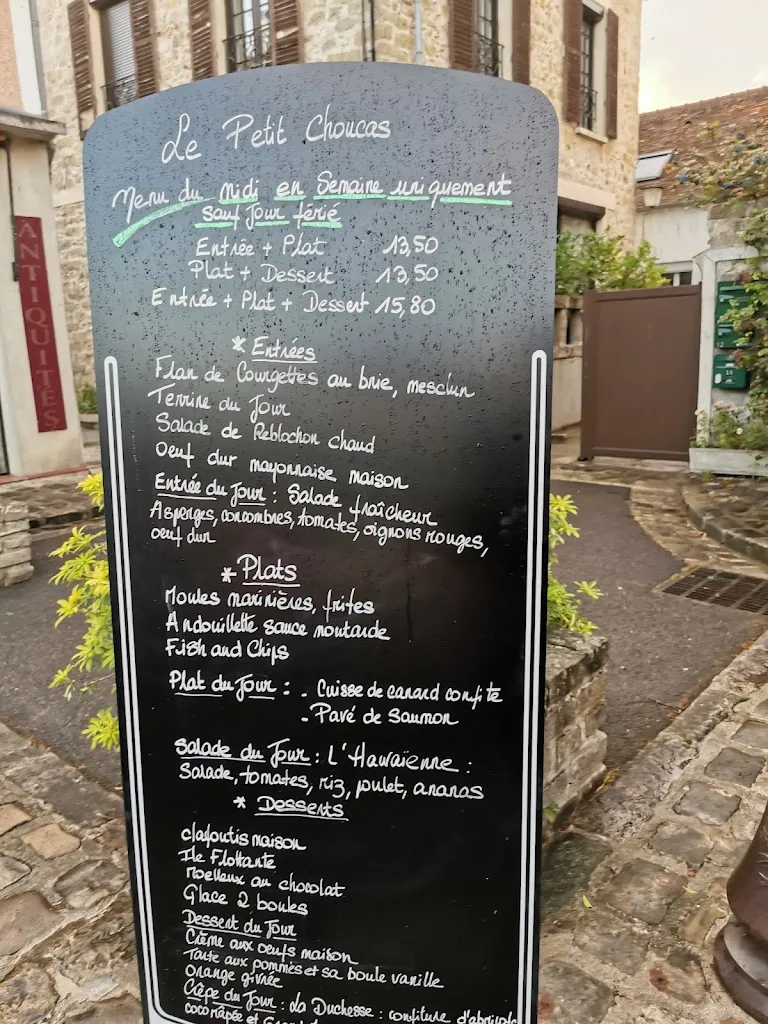 Le Petit Choucas
Menu du midi en Semaine uniquement
sauf Jour férié
Entrée + Plat 13,50
Plat + Dessert 13,50
Entrée + Plat + Dessert 15,80
* Entrées
Flan de Courgettes au brie, mesclun
Terrine du Jour
Salade de Reblochon chaud
Oeuf dur mayonnaise maison
Entrée du Jour : Salade fraîcheur
Asperges, concombres, tomates, oignons rouges,
oeuf dur
* Plats
Moules marinières, frites
Andouillette sauce moutarde
Fish and Chips
Plat du Jour : . Cuisse de canard confite
. Pavé de Saumon
Salade du Jour : L'Hawaïenne :
Salade, tomates, riz, poulet, ananas
* Desserts
clafoutis maison
Ile Flottante
Moelleux au chocolat
Glace 2 boules
Dessert du Jour
Crème aux oeufs maison
Tarte aux pommes et sa boule vanille
Orange givrée
Crêpe du Jour : La Duchesse : confiture d'abricots
coco râpée et
ANTIQUITÉS